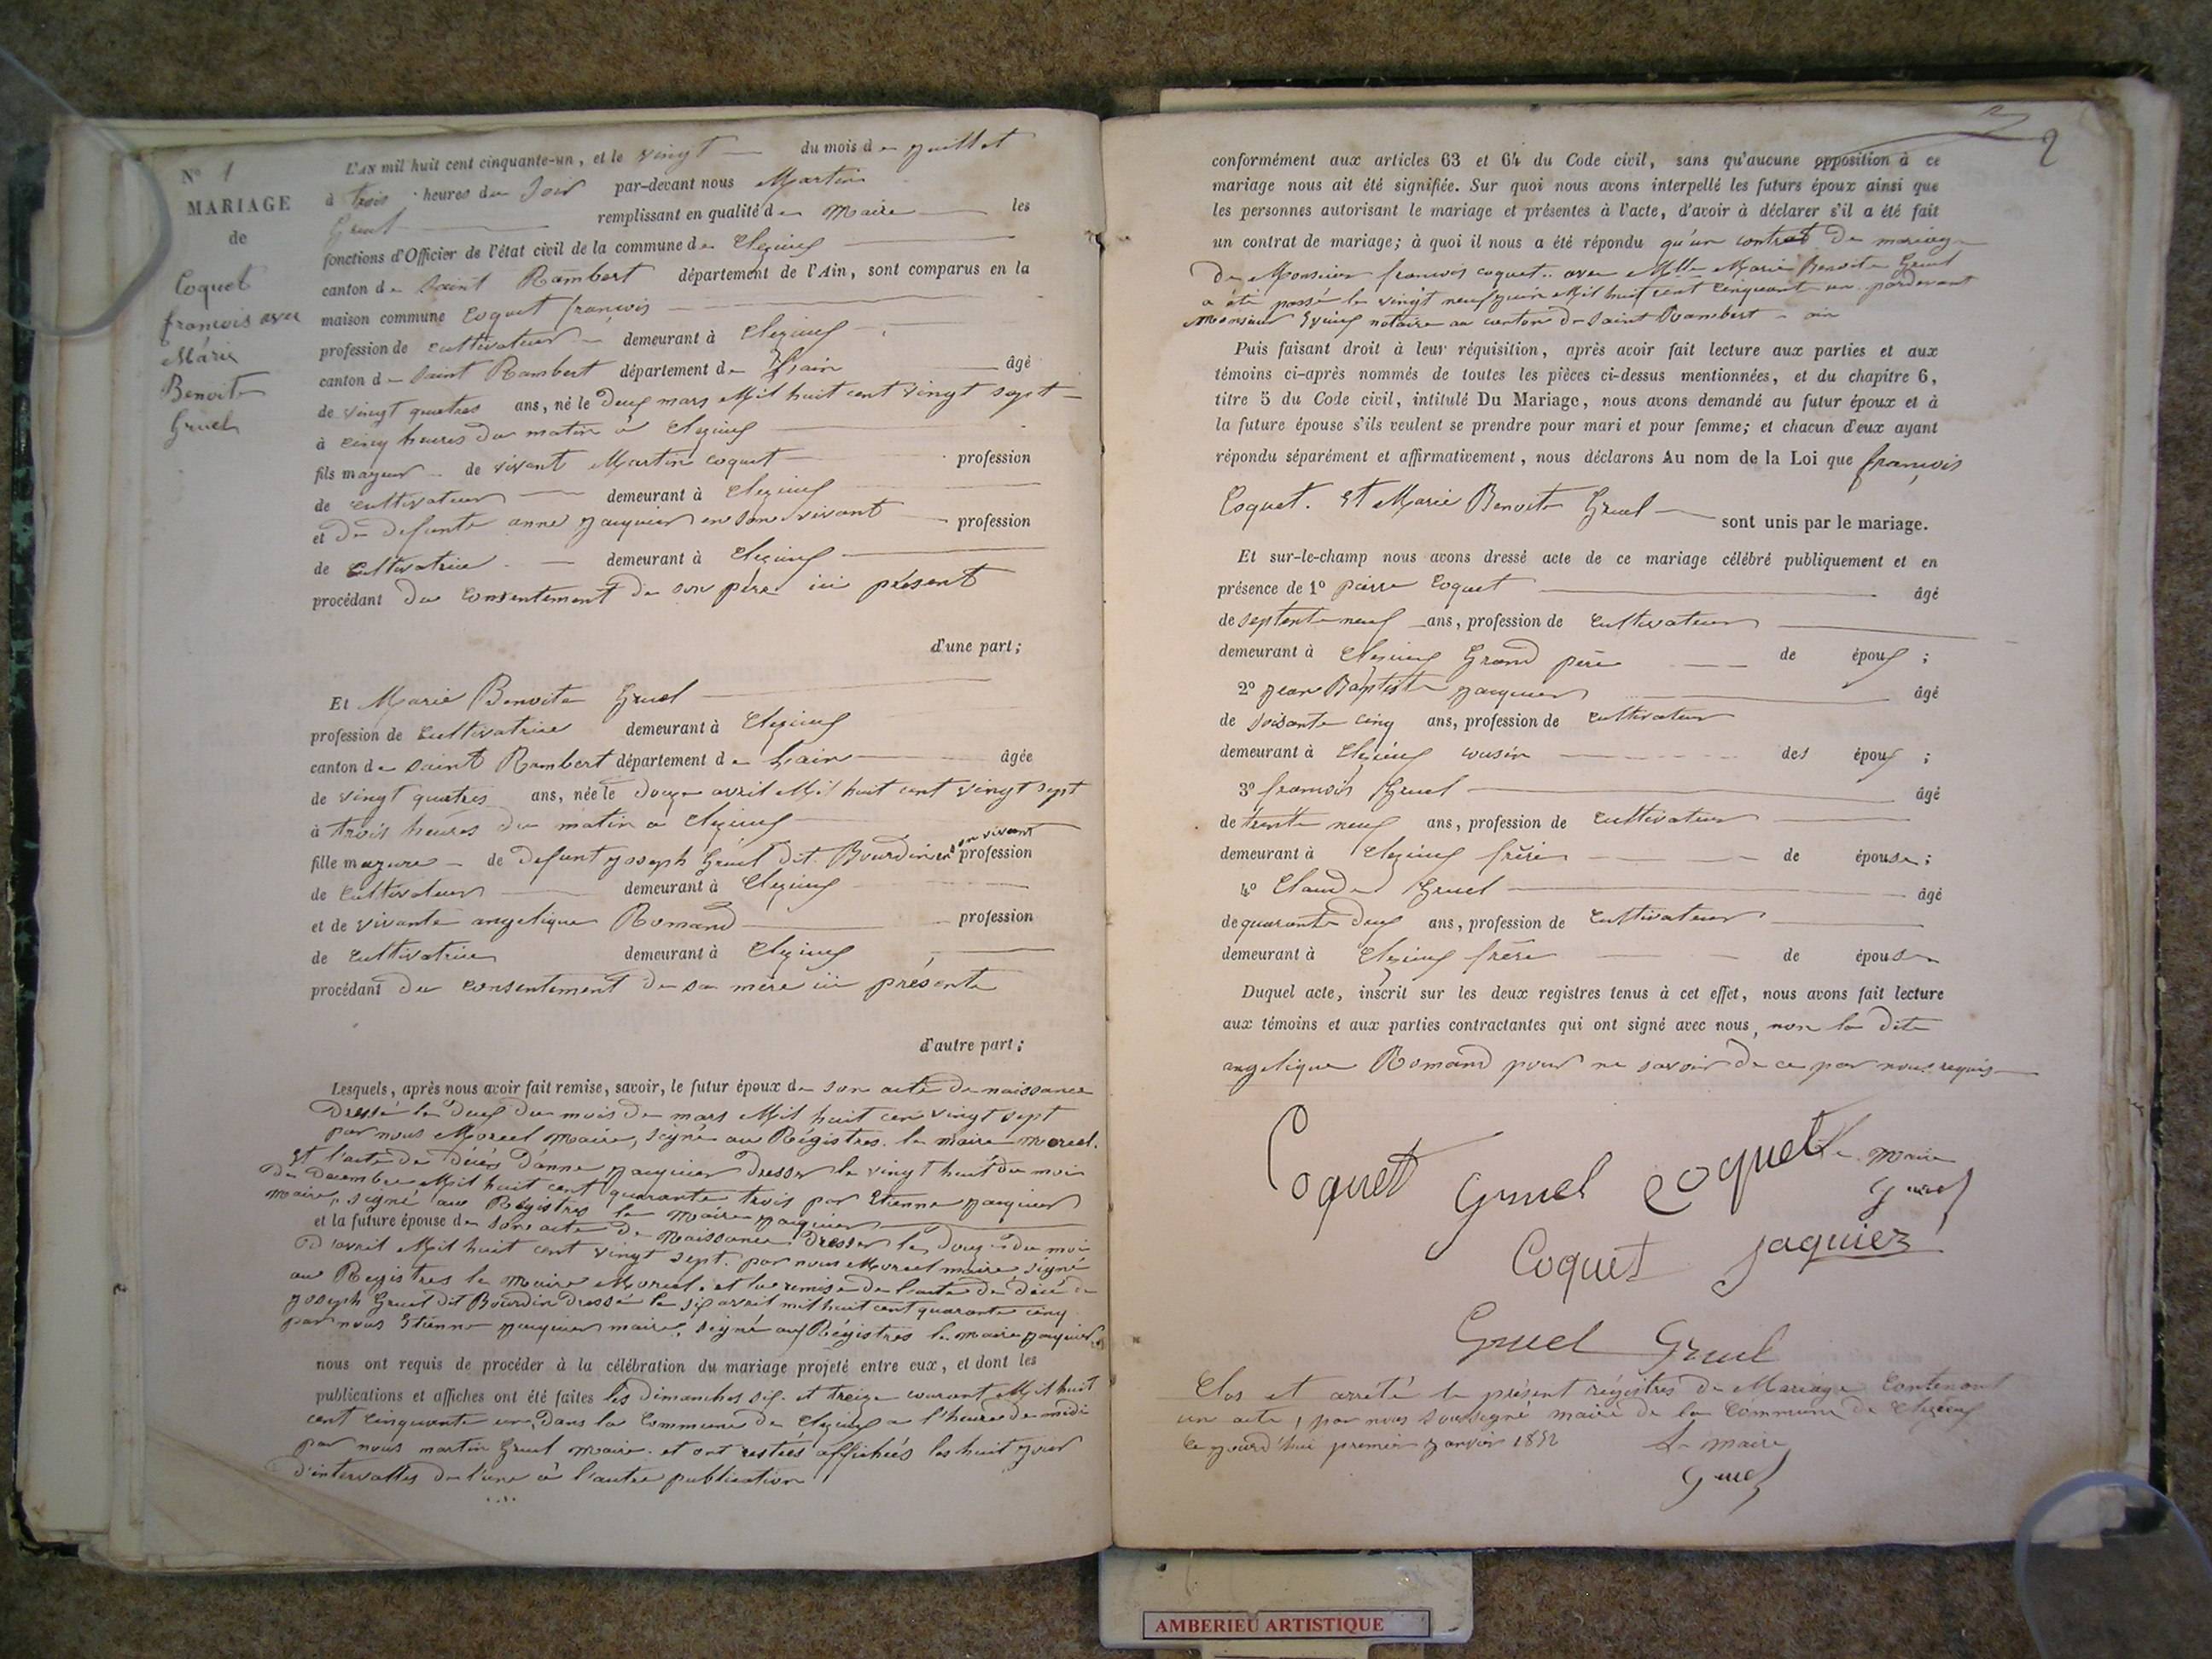 N° 1
MARIAGE
de
Coquet
francois avec
Marie
Benoite
Gruel
L'AN mil huit cent cinquante-un, et le vingt du mois de juillet
à trois heures du Soir par-devant nous Martin
Gruel remplissant en qualité de Maire les
fonctions d'Officier de l'état civil de la commune de Clezieu
canton de Saint Rambert département de l'Ain, sont comparus en la
maison commune Coquet françois
profession de Cultivateur demeurant à Clezieu
canton de Saint Rambert département de Lain âgé
de vingt quatres ans, né le deux mars Mil huit cent vingt sept
à cinq heures du matin a Clezieu
fils mayeur de vivant Martin Coquet profession
de Cultivateur demeurant à Clezieu
et de defunte anne jaquier en son vivant profession
de Cultivatrice demeurant à Clezieu
procédant du Consentement de son père ici présent
d'une part;
Et Marie Benoite Gruel
profession de Cultivatrice demeurant à Clezieu
canton de Saint Rambert département de Lain âgée
de vingt quatres ans, née le douze avril Mil huit cent vingt sept
à trois heures du matin a Clezieu
fille mayure de defunt joseph Gruel dit Bourdin en son vivant profession
de Cultivateur demeurant à Clezieu
et de vivante angelique Romand profession
de Cultivatrice demeurant à Clezieu
procédant du Consentement de sa mère ici présente
d'autre part;
Lesquels, après nous avoir fait remise, savoir, le futur époux de son acte de naissance
dressé le deux du mois de mars Mil huit cen vingt sept
par nous Morcel maire, signé au Régistres le maire morcel.
Et l'acte de décès d'anne jaquier dresser le vingt huit du moi
de decembre Mil huit cent quarante trois par Etienne jaquier
maire, signé au Régistres le maire jaquier
et la future épouse de son acte de Naissance dresser le douze du moi
d'avril Mil huit cent vingt sept par nous Morcel maire signé
au Régistres le Maire Morcel. et la remise de l'acte de décé de
joseph Gruel dit Bourdin dressé le six avril mil huit cent quarante cinq
par nous Etienne jaquier maire, signé aux Régistres le maire jaquier
nous ont requis de procéder à la célébration du mariage projeté entre eux, et dont les
publications et affiches ont été faites les dimanches six et treize courant Mil huit
cent Cinquante un, dans la Commune de Clezieu a l'heure de midi
par nous martin Gruel maire et ont restées affichées les huit jour
d'intervalles de l'une à l'autre publication
2
conformément aux articles 63 et 64 du Code civil, sans qu'aucune opposition à ce
mariage nous ait été signifiée. Sur quoi nous avons interpellé les futurs époux ainsi que
les personnes autorisant le mariage et présentes à l'acte, d'avoir à déclarer s'il a été fait
un contrat de mariage; à quoi il nous a été répondu qu'un contrat de mariage
de Monsieur francois coquet avec Mlle Marie Benoite Gruel
a été passé le vingt neuf juin Mil huit cent Cinquante un pardevant
Monsieur notaire au canton de Saint Rambert ain
Puis faisant droit à leur réquisition, après avoir fait lecture aux parties et aux
témoins ci-après nommés de toutes les pièces ci-dessus mentionnées, et du chapitre 6,
titre 5 du Code civil, intitulé Du Mariage, nous avons demandé au futur époux et à
la future épouse s'ils veulent se prendre pour mari et pour femme; et chacun d'eux ayant
répondu séparément et affirmativement, nous déclarons Au nom de la Loi que françois
Coquet. Et Marie Benoite Gruel sont unis par le mariage.
Et sur-le-champ nous avons dressé acte de ce mariage célébré publiquement et en
présence de 1° pierre Coquet âgé
de septente neuf ans, profession de Cultivateur
demeurant à Clezieu Grand père de époux;
2° jean Baptiste jaquier âgé
de soisante cinq ans, profession de Cultivateur
demeurant à Clezieu cousin des époux;
3° francois Gruel âgé
de trente neuf ans, profession de Cultivateur
demeurant à Clezieu frère de épouse;
4° Claude Gruel âgé
de quarante deux ans, profession de Cultivateur
demeurant à Clezieu frère de épouse
Duquel acte, inscrit sur les deux registres tenus à cet effet, nous avons fait lecture
aux témoins et aux parties contractantes qui ont signé avec nous, non la dite
angelique Romand pour ne savoir de ce par nous requis
Coquet Gruel Coquet Le Maire
Gruel
Coquet jaquiez
Gruel Gruel
Clos et arrété le présent régistres de Mariage Contenant
un acte, par nous soussigné maire de la Commune de Clezieu
ce jourd'hui premier janvier 1852 Le maire
Gruel
AMBERIEU ARTISTIQUE